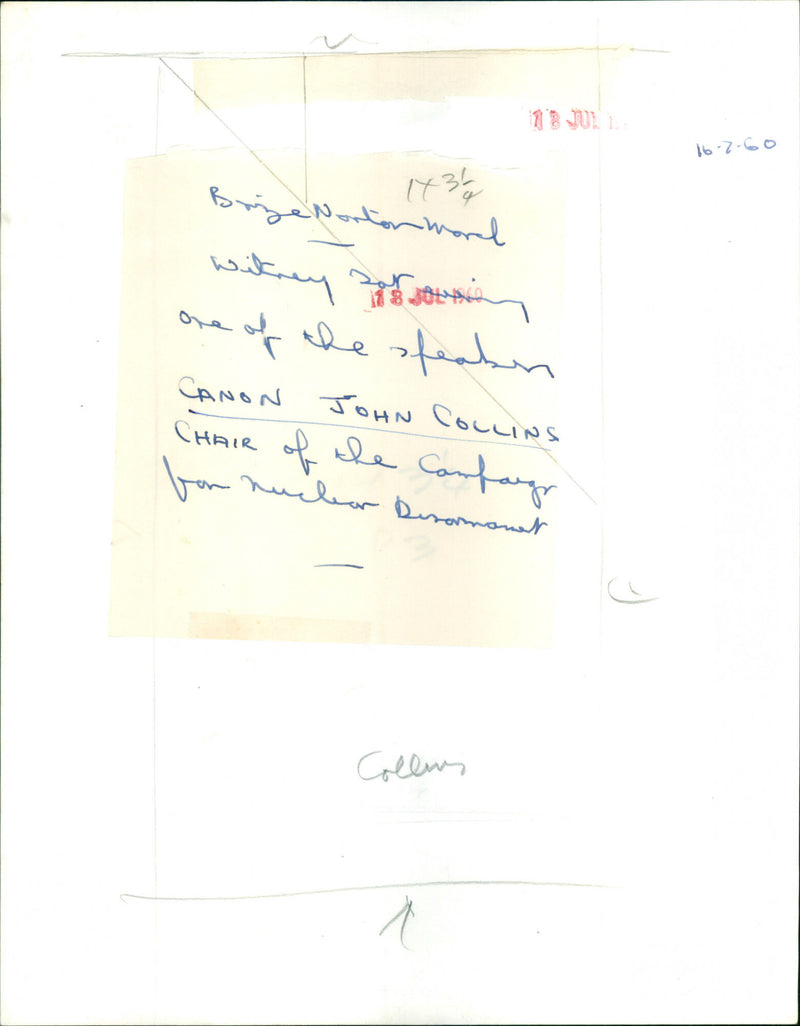 18 JUL
16-7-60
1 x 3 1/4
Brize Norton March
Witney Sat evening
18 JUL 1960
one of the speakers
CANON JOHN COLLINS
CHAIR of the Campaign
for Nuclear Disarmament
Collins